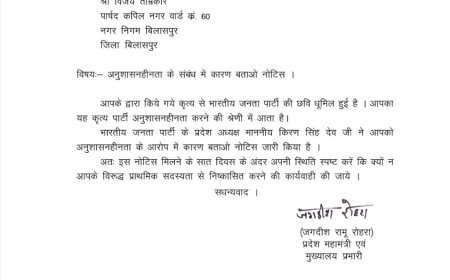 श्री विजय ताम्रकार
पार्षद कपिल नगर वार्ड कं. 60
नगर निगम बिलासपुर
जिला बिलासपुर
विषय:– अनुशासनहीनता के संबंध में कारण बताओ नोटिस ।
आपके द्वारा किये गये कृत्य से भारतीय जनता पार्टी की छवि धूमिल हुई है । आपका
यह कृत्य पार्टी अनुशासनहीनता करने की श्रेणी में आता है।
भारतीय जनता पार्टी के प्रदेश अध्यक्ष माननीय किरण सिंह देव जी ने आपको
अनुशासनहीनता के आरोप में कारण बताओ नोटिस जारी किया है ।
अतः इस नोटिस मिलने के सात दिवस के अंदर अपनी स्थिति स्पष्ट करें कि क्यों न
आपके विरूद्ध प्राथमिक सदस्यता से निष्कासित करने की कार्यवाही की जाये ।
सधन्यवाद ।
जगदीश रोहरा
(जगदीश रामू रोहरा)
प्रदेश महामंत्री एवं
मुख्यालय प्रभारी